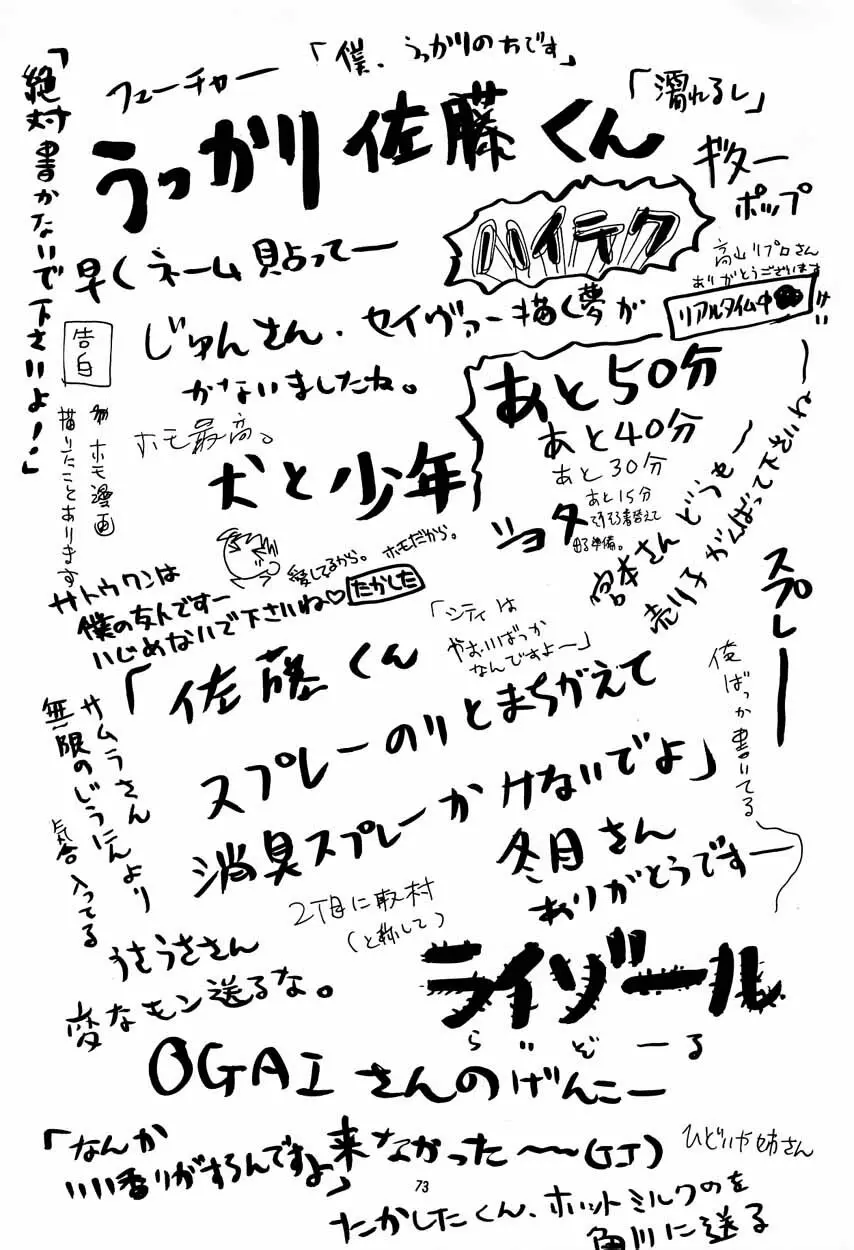 「絶対書かないで下さいよ!」
フューチャー
「僕、うっかりのちです」
「濡れるし」
うっかり佐藤くん
ギター
ポップ
ハイテク
高山リプロさん
ありがとうございます
リアルタイム中
早くネーム貼ってー
じゅんさん、セイヴァー描く夢が
かないましたね。
告白
ホモ漫画
描いたことあります
ホモ最高。
犬と少年
あと50分
あと40分
あと30分
あと15分
そろそろ着替えて
出る準備。
ショタ
宮本さんどうもー
売り子がんばって下さいねー
愛してるから。ホモだから。
サトウクンは
僕の友人ですー
いじめないで下さいね♡
たかした
「シティは
やおいばっか
なんですよ〜」
スプレー
俺ばっか書いてる
「佐藤くん
スプレーのりとまちがえて
消臭スプレーかけないでよ」
サムラさん
無限のじうにんより
気合入ってる
冬月さん
ありがとうですー
2丁目に取材
(と称して)
うさうささん
変なモン送るな。
ライゾール
らいぞーる
OGAIさんのげんこー
来なかった〜〜(GJ)
「なんか
いい香りがするんですよ」
ひどいや姉さん
73
たかしたくん、ホットミルクのを
角川に送る